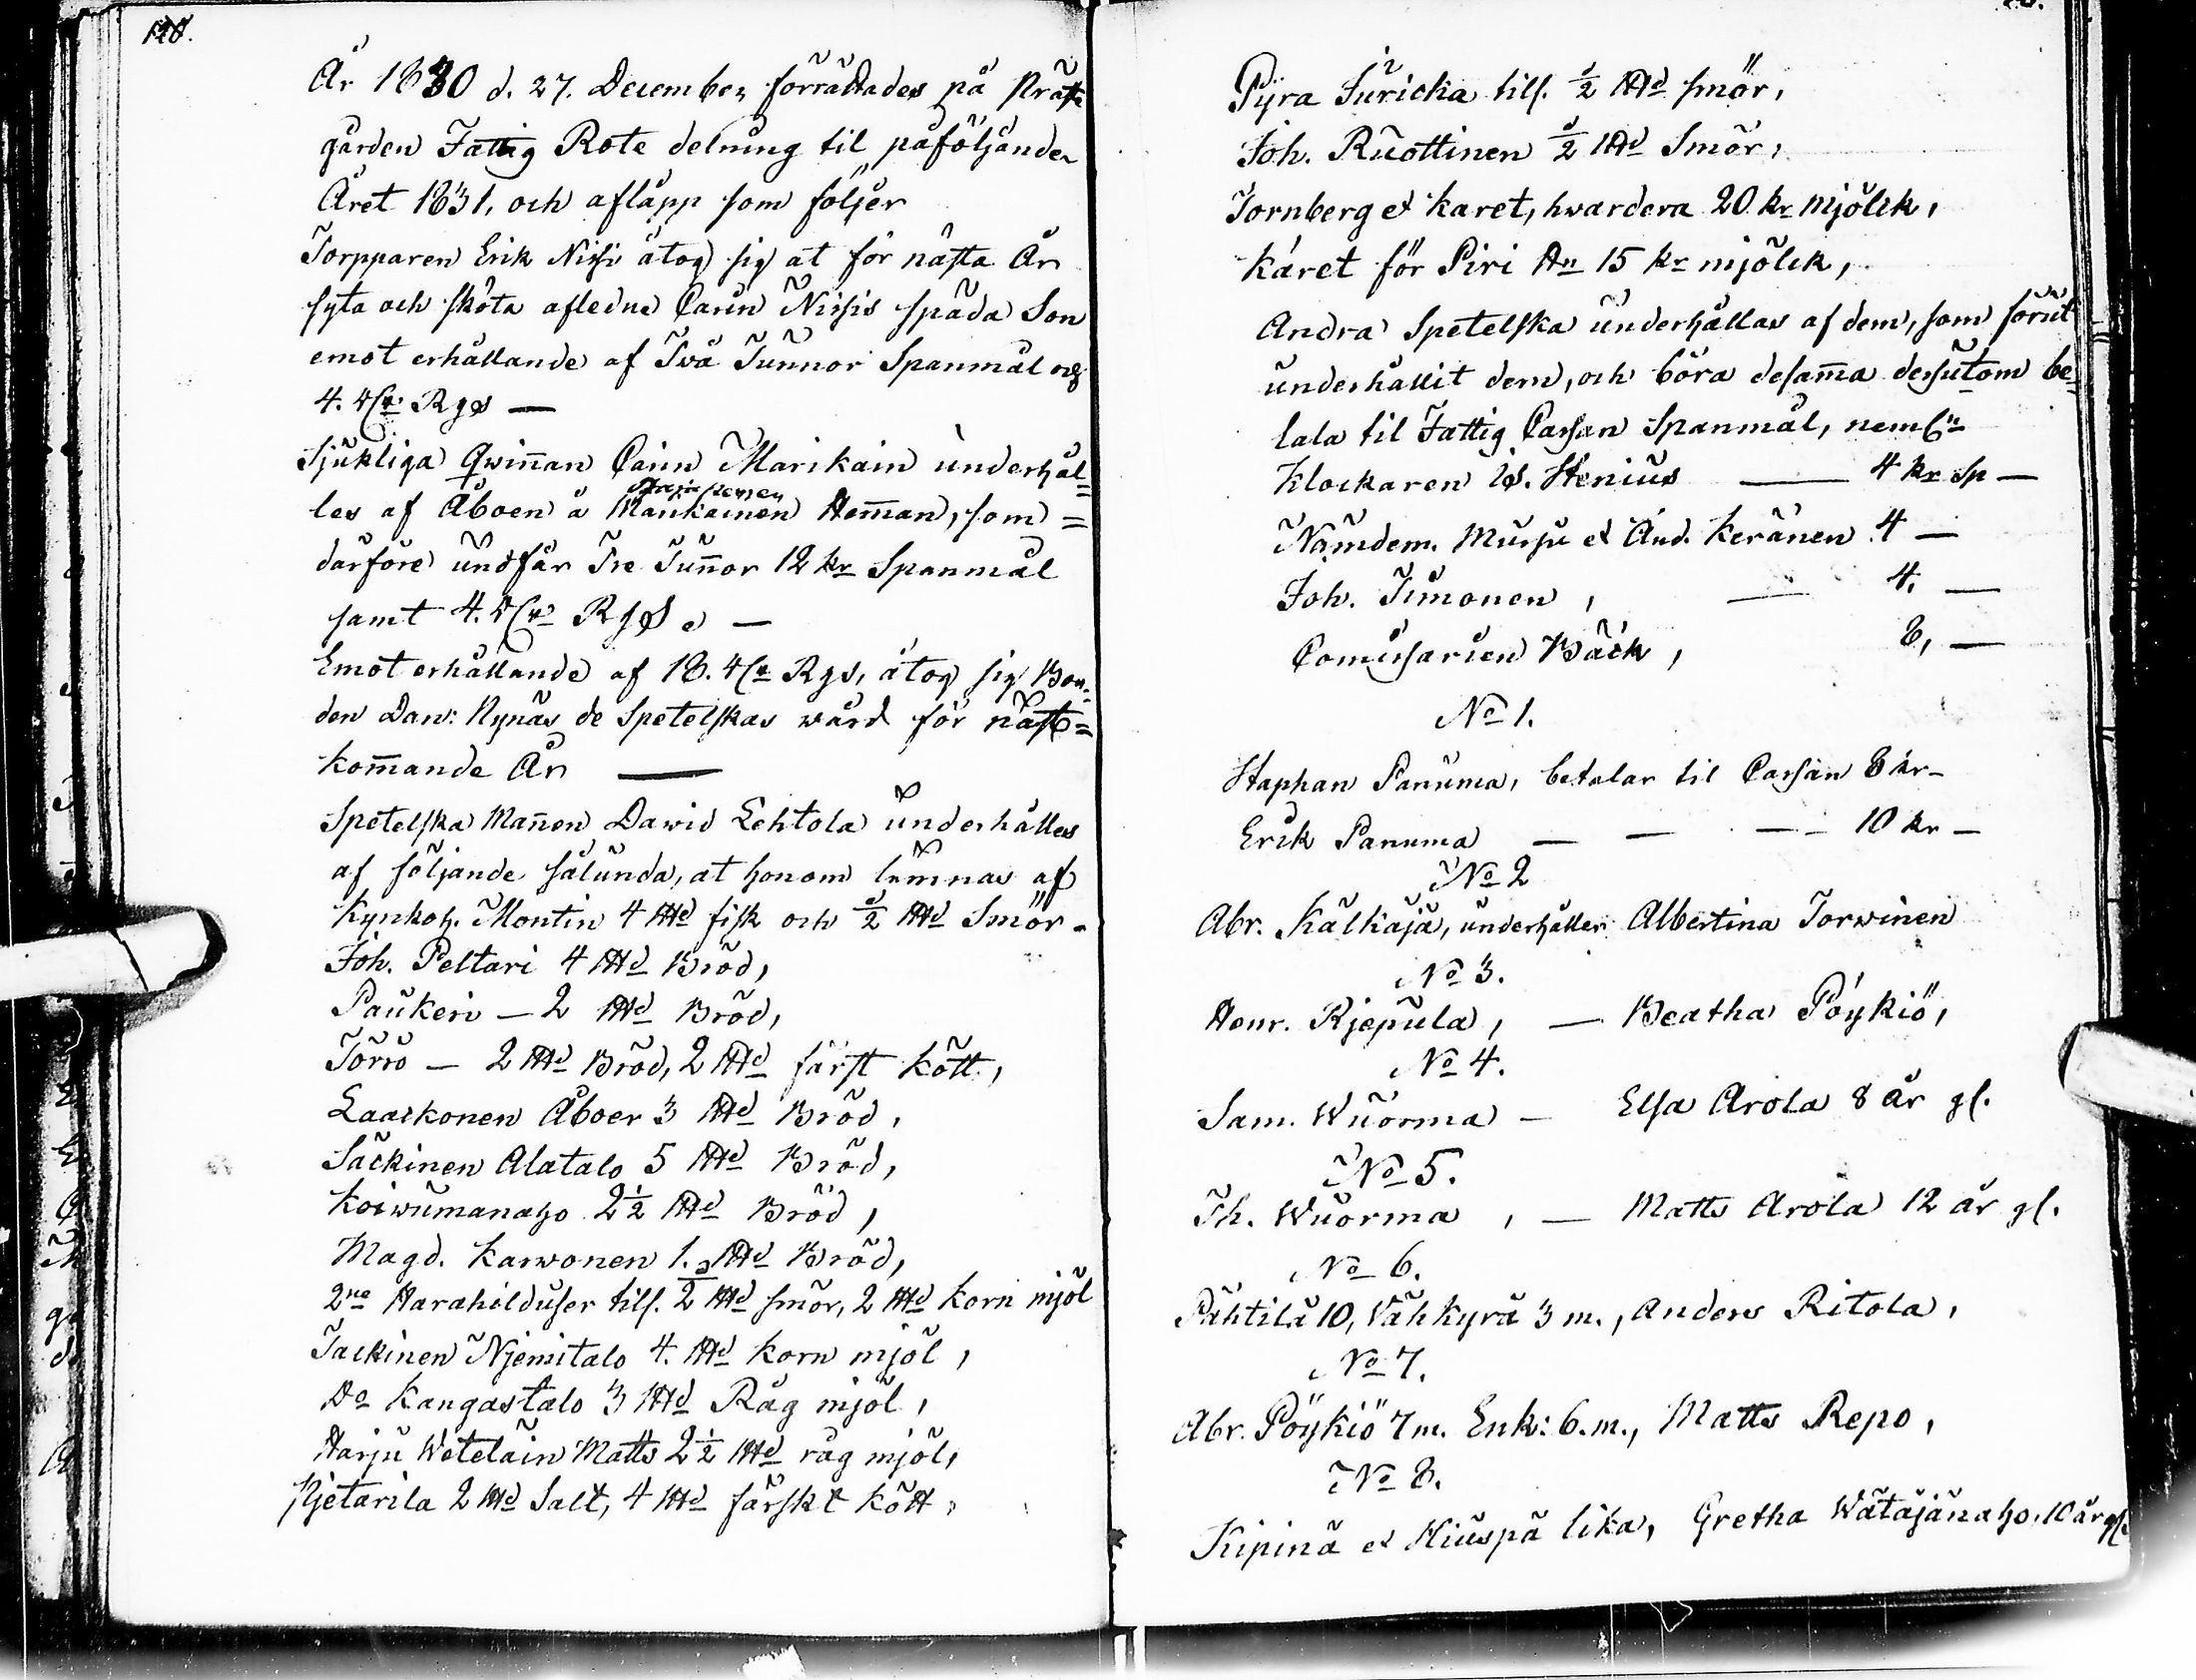 128.
År 1830 d. 27. December förrättades på Präst
gården Fattig Rote delning til påföljande
Året 1831, och aflapp som följer
Torpparen Erik Nissi åtog sig at för nästa År
syta och sköta afledne Carin Nissis späda Son
emot erhållande af Två Tunnor Spanmål och
4. Rgs —
Sjukliga Qwinnan Carin Marikain underhål=
les af Åboen å Maukainen Hemman, som =
därföre undfår Tre Tunnor 12 kr Spanmål
samt 4. Rgs —
Emot erhållande af 18. Rgs, åtog sig Bon=
den Dan: Nynäs de Spetelskas wård för näst=
kommande År —
Spetelska Mannen Dawid Lehtola underhålles
af följande sålunda, at honom lemnas af
Kynkoh. Montin 4 ℔d fisk och ½ ℔d Smör.
Joh. Peltari 4 ℔d Bröd,
Paukeri — 2 ℔d Bröd,
Törrö — 2 ℔d Bröd, 2 ℔d färst kött,
Laackonen Åboer 3 ℔d Bröd,
Säckinen Alatalo 5 ℔d Bröd,
Koiwumanaho 2½ ℔d Bröd,
Magd. Karwonen 1. ℔d Bröd,
2ne Harahilduser tils. ½ ℔d smör, 2 ℔d Korn mjöl
Jackinen Njemitalo 4. ℔d Korn mjöl,
Do Kangastalo 3 ℔d Råg mjöl,
Harju Wetelain Matts 2½ ℔d råg mjöl,
Pjetarila 2 ℔d Salt, 4 ℔d färskt kött,
Pyra Juricka tils. ½ ℔d smör,
Joh. Ruottinen ½ ℔d Smör,
Tornberg et Karet, hwardera 20 kr mjölck,
Karet för Piri 15 kr mjölck,
Andra Spetelska underhållas af dem, som förut
underhållit dem, och böra desamma dessutom be=
tala til Fattig Cassan Spanmål, neml:n
Klockaren Is. Stenius — 4 kr Sp —
Nämdem. Mursu et And. Keränen 4 —
Joh. Timonen, — 4. —
Comissarien Bäck, 8, —
No 1.
Staphan Panuma, betalar til Cassan 8 kr —
Erik Panuma — — — 10 kr —
No 2
Abr. Kälkäjä, underhåller Albertina Torwinen
No 3.
Henr. Rjepula, — Beatha Pöykiö,
No 4.
Sam. Wuorma — Elsa Arola 8 år gl.
No 5.
Th. Wuorma, — Matts Arola 12 år gl.
No 6.
Pähtilä 10, Vähkyrä 3 m., Anders Ritola,
No 7.
Abr. Pöykiö 7 m. Enk: 6. m., Matts Repo,
No 8.
Kipinä et Hiuspä lika, Gretha Wätäjänaho, 10 år gl.